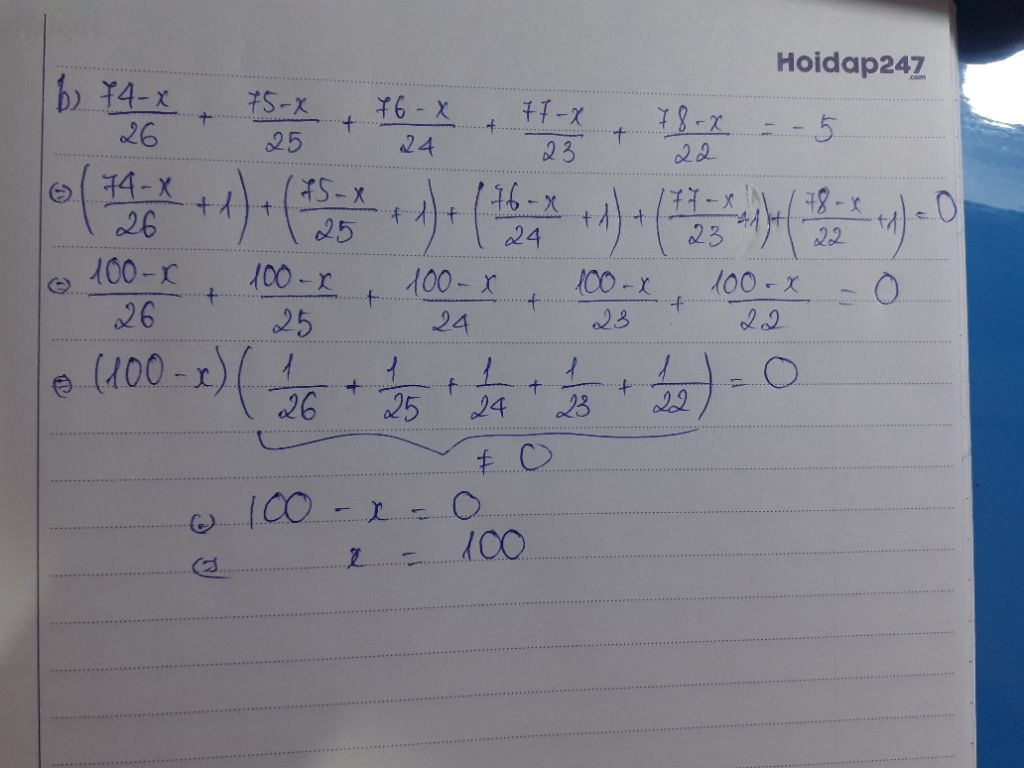 Hoidap247
.com
b) (74-x)/26 + (75-x)/25 + (76-x)/24 + (77-x)/23 + (78-x)/22 = -5
⇔ ((74-x)/26 + 1) + ((75-x)/25 + 1) + ((76-x)/24 + 1) + ((77-x)/23 + 1) + ((78-x)/22 + 1) = 0
⇔ (100-x)/26 + (100-x)/25 + (100-x)/24 + (100-x)/23 + (100-x)/22 = 0
⇔ (100-x)(1/26 + 1/25 + 1/24 + 1/23 + 1/22) = 0
≠ 0
⇔ 100 - x = 0
⇔ x = 100